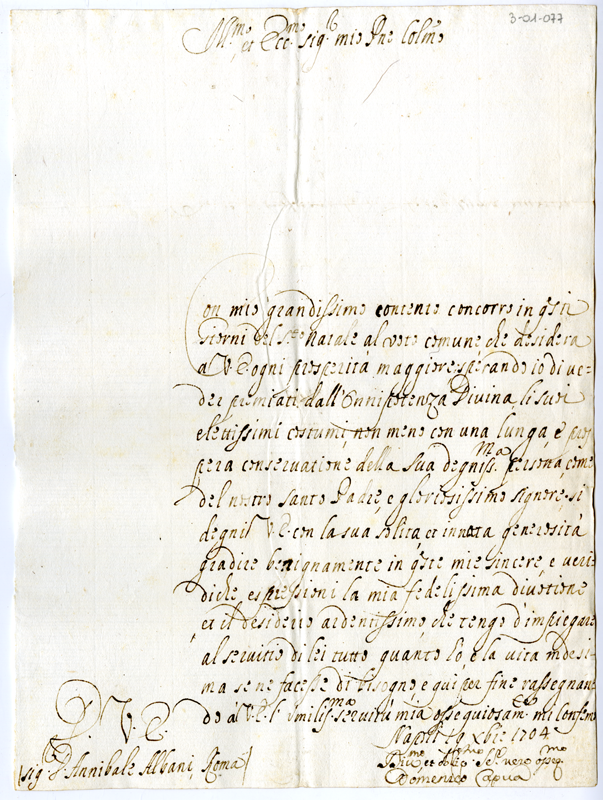 3-01-077
Ill.mo et Ecc.mo sig.r mio Pne Colmo
Con mio grandissimo contento concorro in q̃sti
giorni del S.to Natale al voto comune che desidera
a V. E. ogni prosperità maggiore, sperando io di ve-
der premiati dall'Onnipotenza Divina li suoi
elettissimi costumi non meno con una lunga e pros
pera conservatione della sua degniss.ma persona come
del nostro santo Padre, e gloriosissimo signore, si
degni V. E. con la sua solita et innata generosità
gradire benignamente in q̃ste mie sincere, e veri-
diche espressioni la mia fedelissima divotione
et il desiderio ardentissimo che tengo d'impiegare
al servitio di lei tutto quanto ho, e la vita mdesi-
ma se ne facesse di bisogno, e qui per fine rassegnan
do à V. E. l'umiliss.ma servitù mia ossequiosam.te mi confermo
D. V. E.
Napoli 9 Xbr. 1704
sig.r D. Annibale Albani, Roma
Domenico Capua